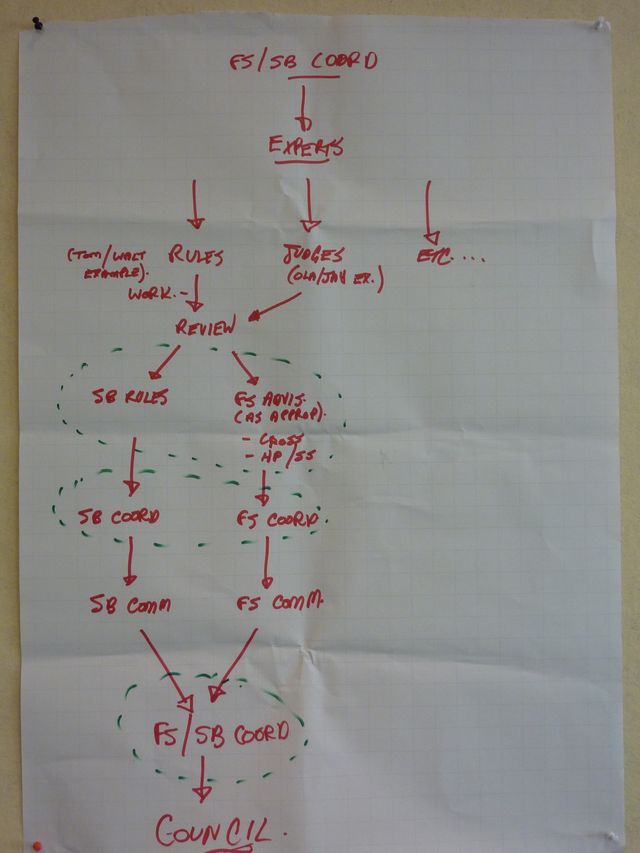 FS/SB COORD
EXPERTS
(TOM/WALT
EXAMPLE).
RULES
JUDGES
(OLA/JAY EX.)
ETC....
WORK.-
REVIEW
SB RULES
FS ADVIS.
(AS APPROP).
- CROSS
- HP/SS
SB COORD
FS COORD
SB COMM
FS COMM.
FS/SB COORD
COUNCIL.